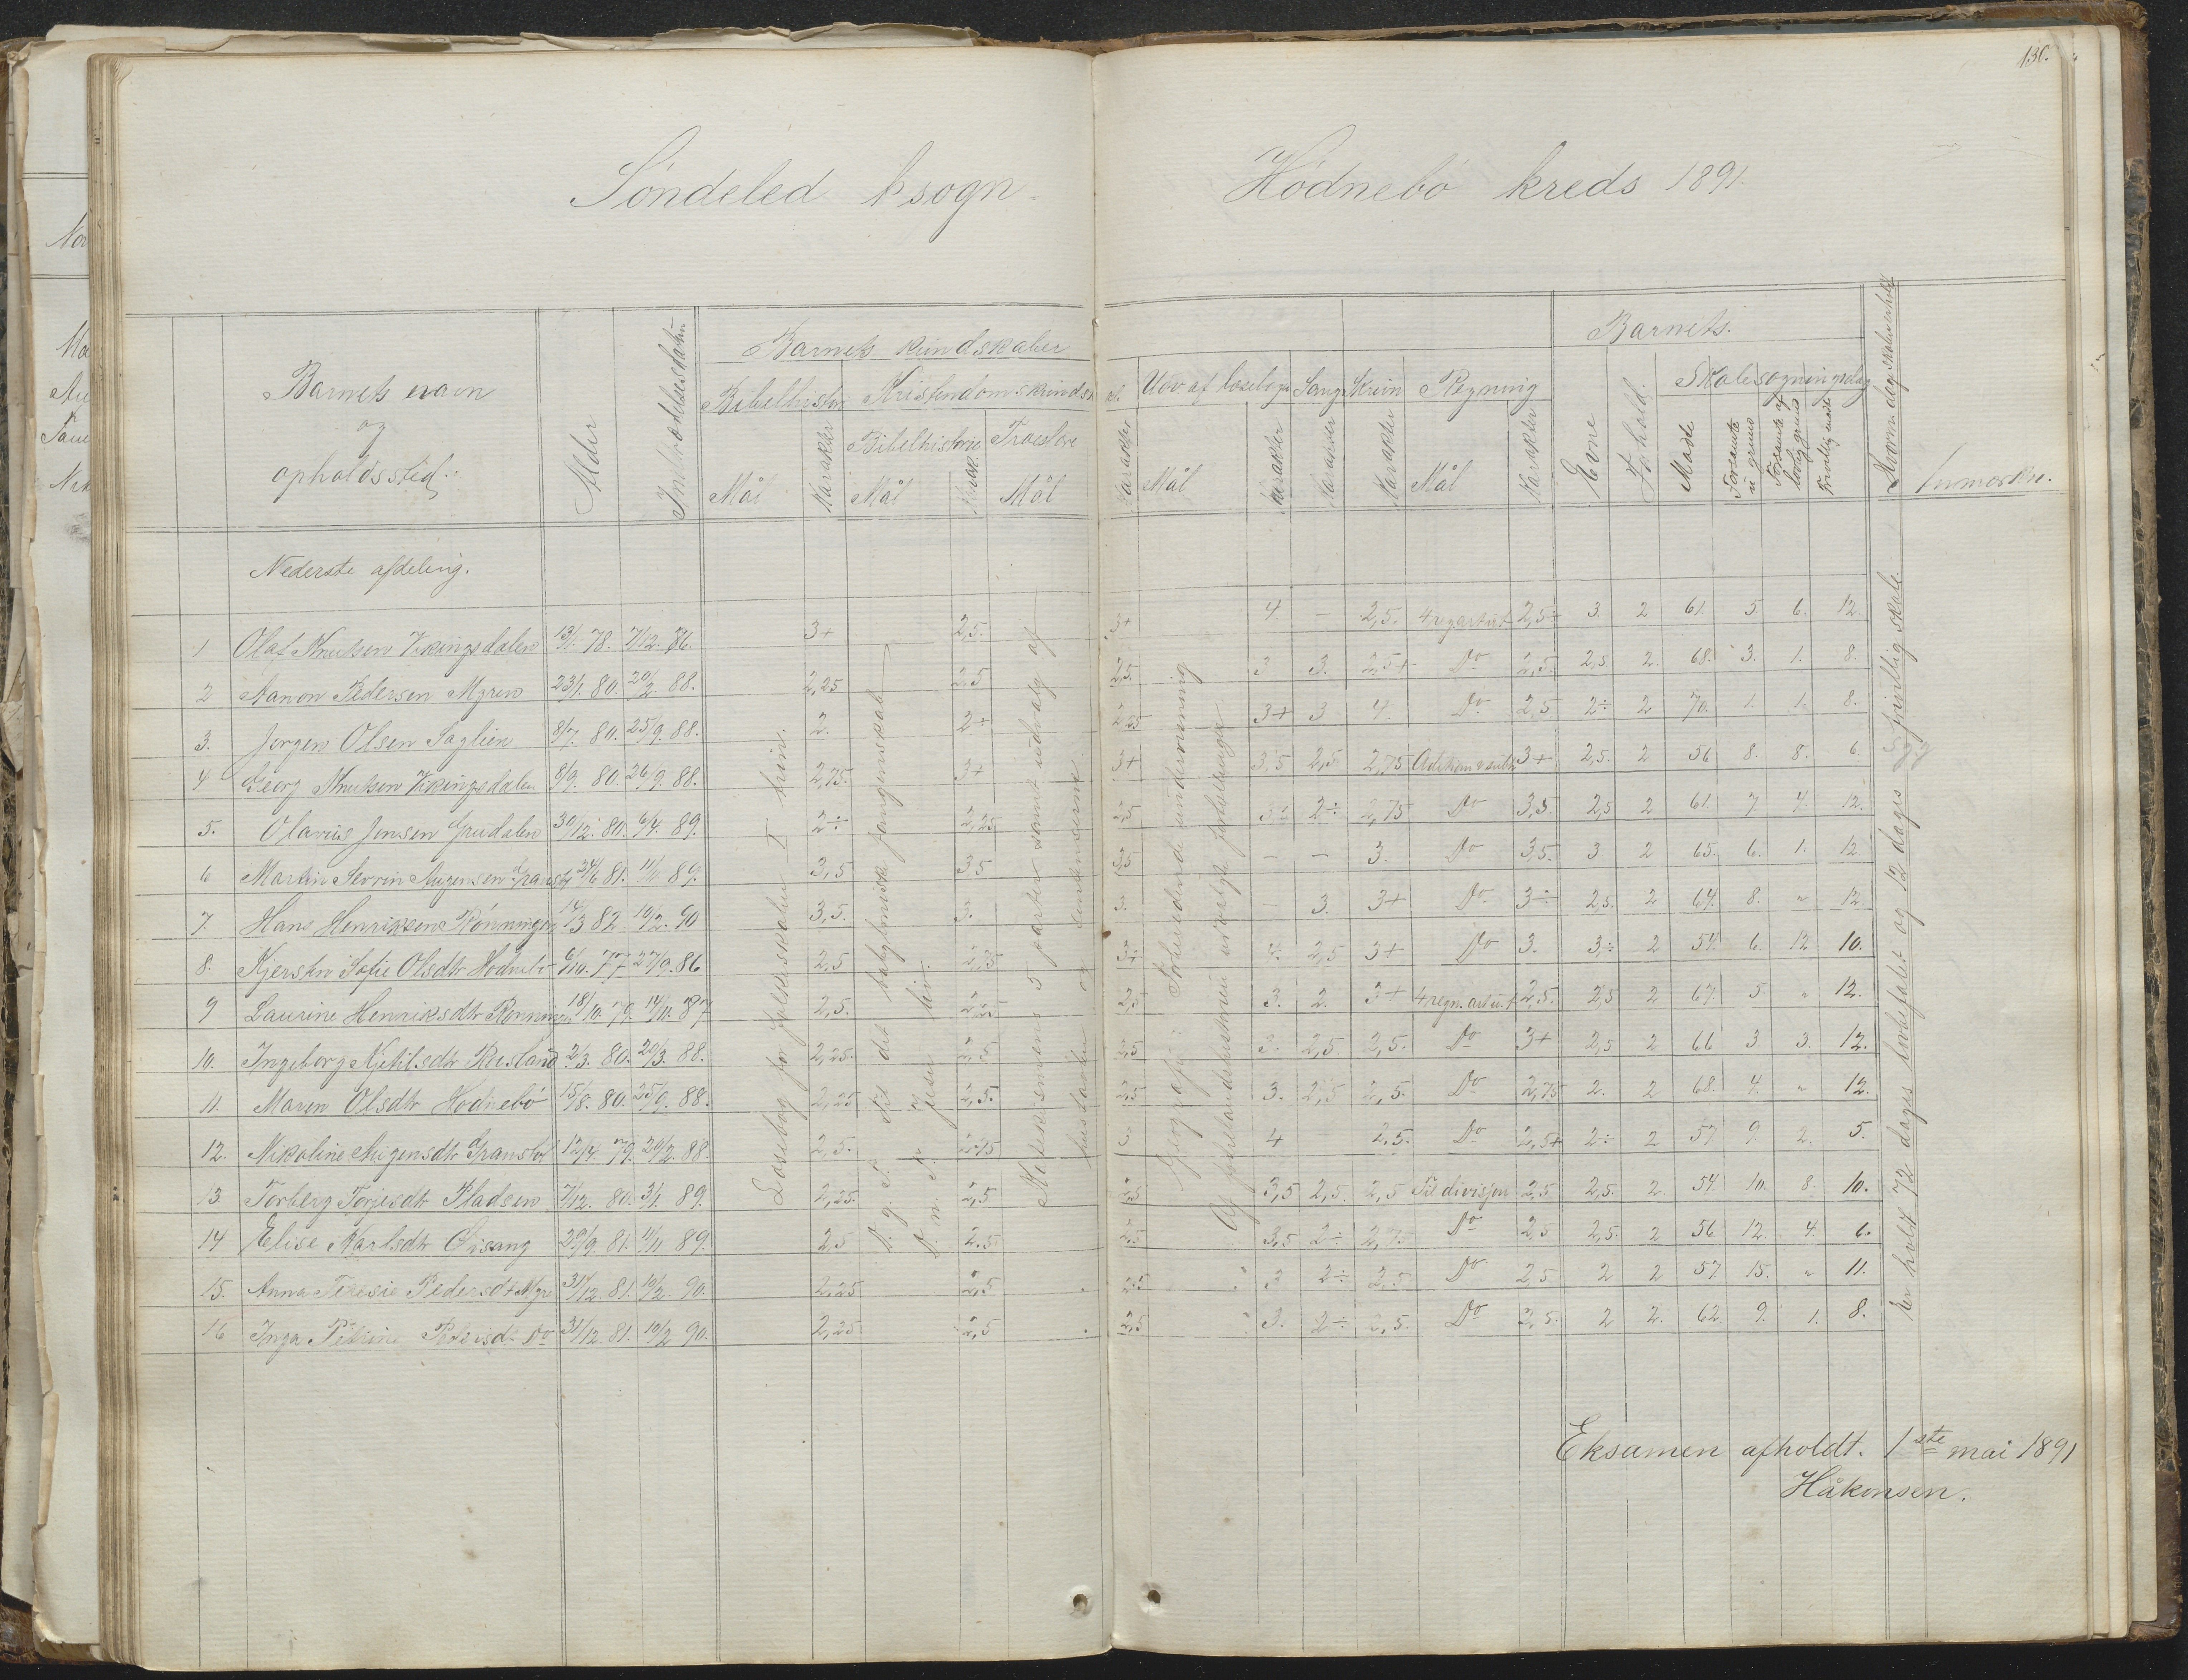 130.
Söndeled hsogn - Hödnebö kreds 1891.
Barnets navn
og
opholdssted.
Alder
Indtrædelsesdatum
Barnets kundskaber
Bibelhistor
Kristendomskundsk
Mål
Karakter
Bibelhistorie
Mål
Karak.
Troeslære
Mål
Karakter
Udv af læsebogen
Mål
Karakter
Sang
Karakter
Skriv
Karakter
Regning
Mål
Karakter
Barnets.
Evne
Forhold.
Skolesøgningsdag
Møde
Forsømte u grund
Forsømte af lovlig grund
Frivillig møde
Anmærkn.
Nederste afdeling.
1 Olaf Knutsen Vikingsdalen 13/1. 78. 7/12. 86. 3+ 2,5. 3+ 4. - 2,5. 4 reg arter ut 2,5÷ 3. 2 61. 5. 6. 12.
2 Aanon Pedersen Myren 23/1. 80. 20/2. 88. 2,25 2,5 2,5. 3 3. 2,5+ Do 2,5. 2,5. 2. 68. 3. 1. 8.
3. Jörgen Olsen Saglien 8/7. 80. 25/9. 88. 2. 2+ 2,25 3+ 3 4. Do 2,5 2÷ 2 70. 1. 1. 8.
4 Georg Knutsen Vikingsdalen 8/9. 80. 26/9. 88. 2,75. 3+ 3+ 3,5 2,5 2,75 3+ 2,5. 2 56 8. 8. 6.
5. Olavus Jensen Grudalen 30/12. 80. 6/4. 89. 2÷ 2,25 2,5 2÷ 2,75 Do 3,5. 2,5 2 61. 7 4. 12.
6 Martin Severin Augensen Granstöl 24/6 81. 11/11. 89. 3,5 3,5 3,5 - - 3. Do 3,5. 3 2 65. 6. 1. 12.
7. Hans Henriksen Rönningen 14/3 82 10/2. 90 3,5. 3. 3. - 3. 3+ Do 3÷ 2,5. 2 64. 8. " 12.
8. Kjerstin Sofie Olsdtr Hödnebö 6/10. 77 27/9. 86 2,5 2,75 3+ 4. 2,5 3+ Do 3. 3÷ 2 54. 6. 12 10.
9 Laurine Henriksdtr Rönningen 18/10. 79. 14/11. 87 2,5. 2,25 2,5 3. 2. 3+ 4 regn. art ut 2,5. 2,5 2 67. 5. " 12.
10. Ingeborg Kjetilsdtr Risland 2/3. 80. 20/3. 88. 2,25. 2,5 2,5 3. 2,5. 2,5. Do 3+ 2,5 2 66 3. 3. 12.
11. Maren Olsdtr Hödnebö 15/8. 80. 25/9. 88. 2,25 2,5. 2,5 3. 2,5 2,5. Do 2,75 2. 2 68. 4. " 12.
12. Nikoline Augensdtr Granstöl 12/4. 79. 20/2. 88. 2,5. 2,75 3. 4 2,5. Do 2,5+ 2÷ 2 57 9. 2. 5.
13 Torberg Torjesdtr Pladsen 7/12. 80. 3/1. 89. 2,25. 2,5 2,5 3,5 2,5. 2,5 Til divisjon 2,5 2,5. 2. 54 10. 8. 10.
14 Elise Karlsdtr Öisang 29/9. 81. 11/11 89. 2,5 2,5. 2,5 3,5 2÷ 2,75 Do 2,5 2,5. 2 56 12. 4. 6.
15. Anna Teresie Pedersdt Myr 31/12. 81. 10/2. 90. 2,25 2,5. 2,5 3 2÷ 2,5 Do 2,5 2 2 57. 15. " 11.
16 Inga Petrine Pedersd. Do 31/12. 81. 10/2 90. 2,25 2,5 2,5 3. 2÷ 2,5. Do 2,5. 2 2. 62. 9. 1. 8.
Læsebog for folkeskolen I trin.
D. g. T. til det babyloniske fangenskab
D. n. T. Jesu liv.
Katekismens 5 parter samt udvalg af
hustavlen og
Geografi: Forberedende undervisning
Af fædrelandshistorien udvalgte fortællinger
Her holdt 72 dages lovbefalet og 12 dages frivillig skole.
Eksamen afholdt. 1ste mai 1891
Håkonsen.